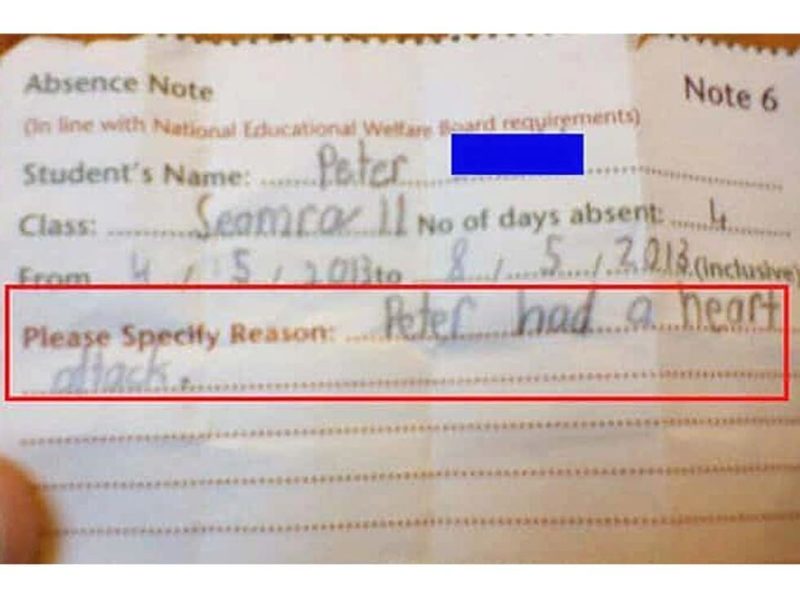 Absence Note
Note 6
(In line with National Educational Welfare Board requirements)
Student's Name: Peter
Class: Seomra 11 No of days absent: 4
From 4 / 5 / 2013 to 8 / 5 / 2013 (Inclusive)
Please Specify Reason: Peter had a heart
attack.